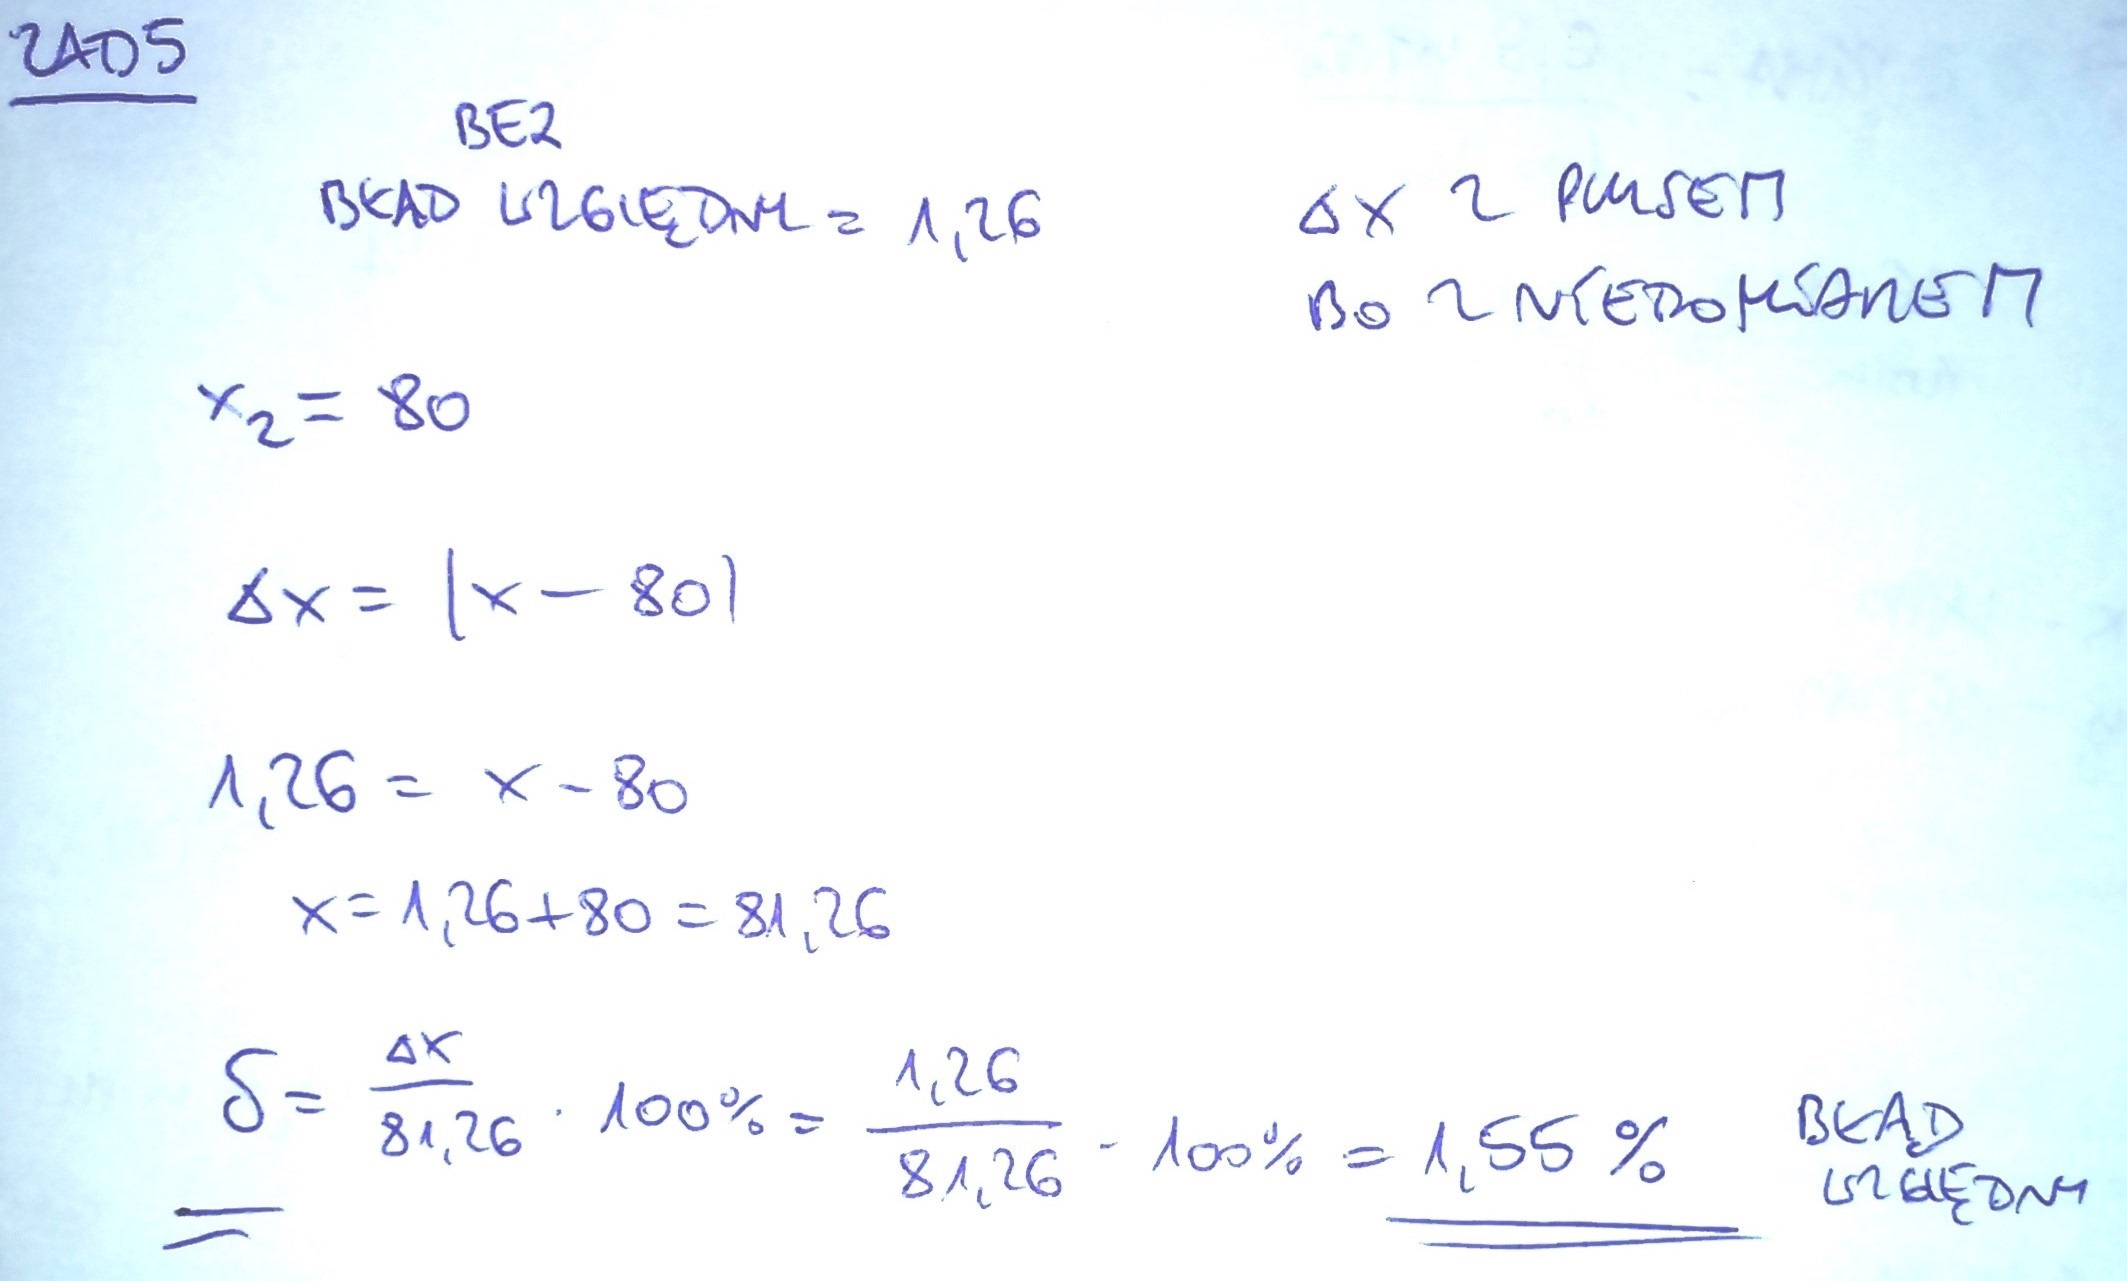 ZAD5
BEZ
BŁAD WZGLĘDNY = 1,26
Δx Z PLUSEM
BO Z NIEDOMIAREM
x₂ = 80
Δx = |x - 80|
1,26 = x - 80
x = 1,26 + 80 = 81,26
δ = Δx/81,26 · 100% = 1,26/81,26 · 100% = 1,55 %
BŁAD
WZGLĘDNY